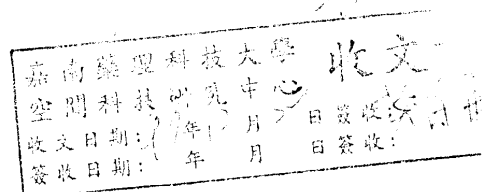 嘉南藥理科技大學 收文
空間科技研究中心
收文日期: 年 月 日 簽收
簽收日期: 年 月 日 簽收: